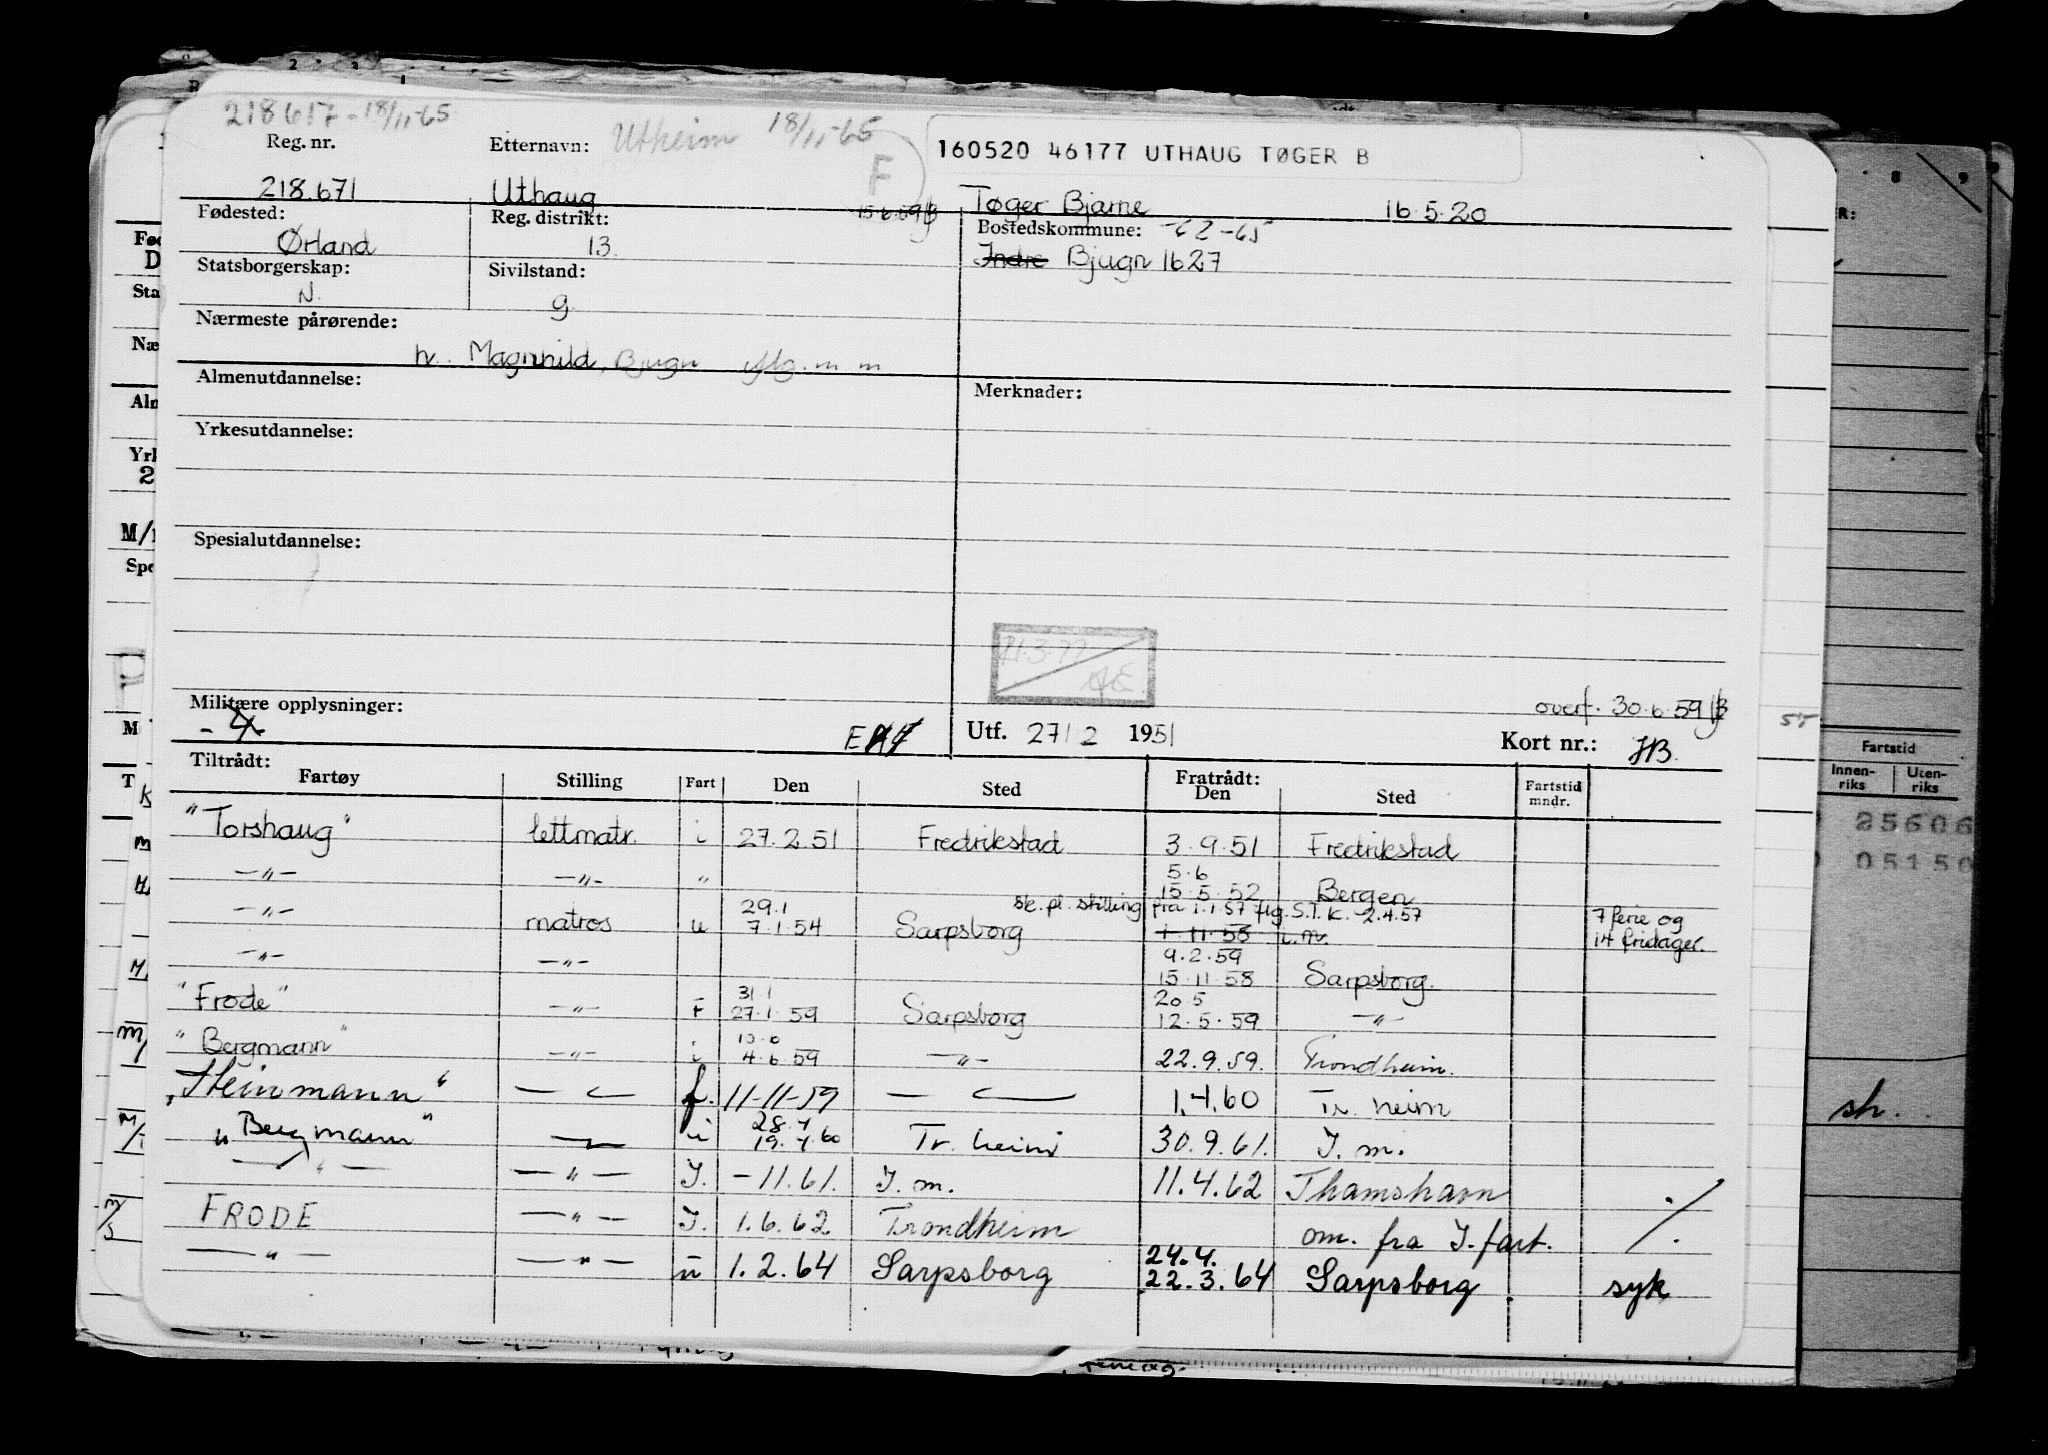 218617 - 18/11-65
Reg. nr.
Etternavn: Utheim 18/11-65
F
160520 46177 UTHAUG TØGER B
218.671 Uthaug 15.6.59 Tøger Bjarne 16.5.20
Fødested: Reg. distrikt: Bostedskommune: -62-65
Ørland 13. Indre Bjugn 1627
Statsborgerskap: Sivilstand:
N. g.
Nærmeste pårørende:
h. Magnhild, Bjugn
Almenutdannelse: Merknader:
Yrkesutdannelse:
Spesialutdannelse:
Militære opplysninger: overf. 30.6.59
Utf. 27/2 1951 Kort nr.:
Tiltrådt: Fratrådt:
Fartøy Stilling Fart Den Sted Den Sted Fartstid mndr.
"Torshaug" lettmatr. i 27.2.51 Fredrikstad 3.9.51 Fredrikstad
5.6
—"— —"— " 15.5.52 Bergen
29.1 sk. pl. stilling fra 1.1.57 flg. S.T.K. 2.4.57 7 ferie og
—"— matros u 7.1.54 Sarpsborg 1.11.58 i.m. 14 fridager.
9.2.59
—"— —"— 15.11.58 Sarpsborg.
31.1 20.5
"Frode" —"— F 27.1.59 Sarpsborg 12.5.59 —"—
"Bergmann" —"— i 4.6.59 —"— 22.9.59. Trondheim.
"Steinmann" —"— f. 11-11-59 —"— 1.4.60 Tr. heim
28.4
"Bergmann" —"— u 19.4.60 Tr. heim 30.9.61. I. m.
—"— —"— I. -11.61. I. m. 11.4.62 Thamshavn
FRODE —"— I. 1.6.62 Trondheim om. fra I. fart. ./.
24.4.
—"— —"— u 1.2.64 Sarpsborg 22.3.64 Sarpsborg syk
Fartstid
Innenriks Utenriks
25606
05150
sh.